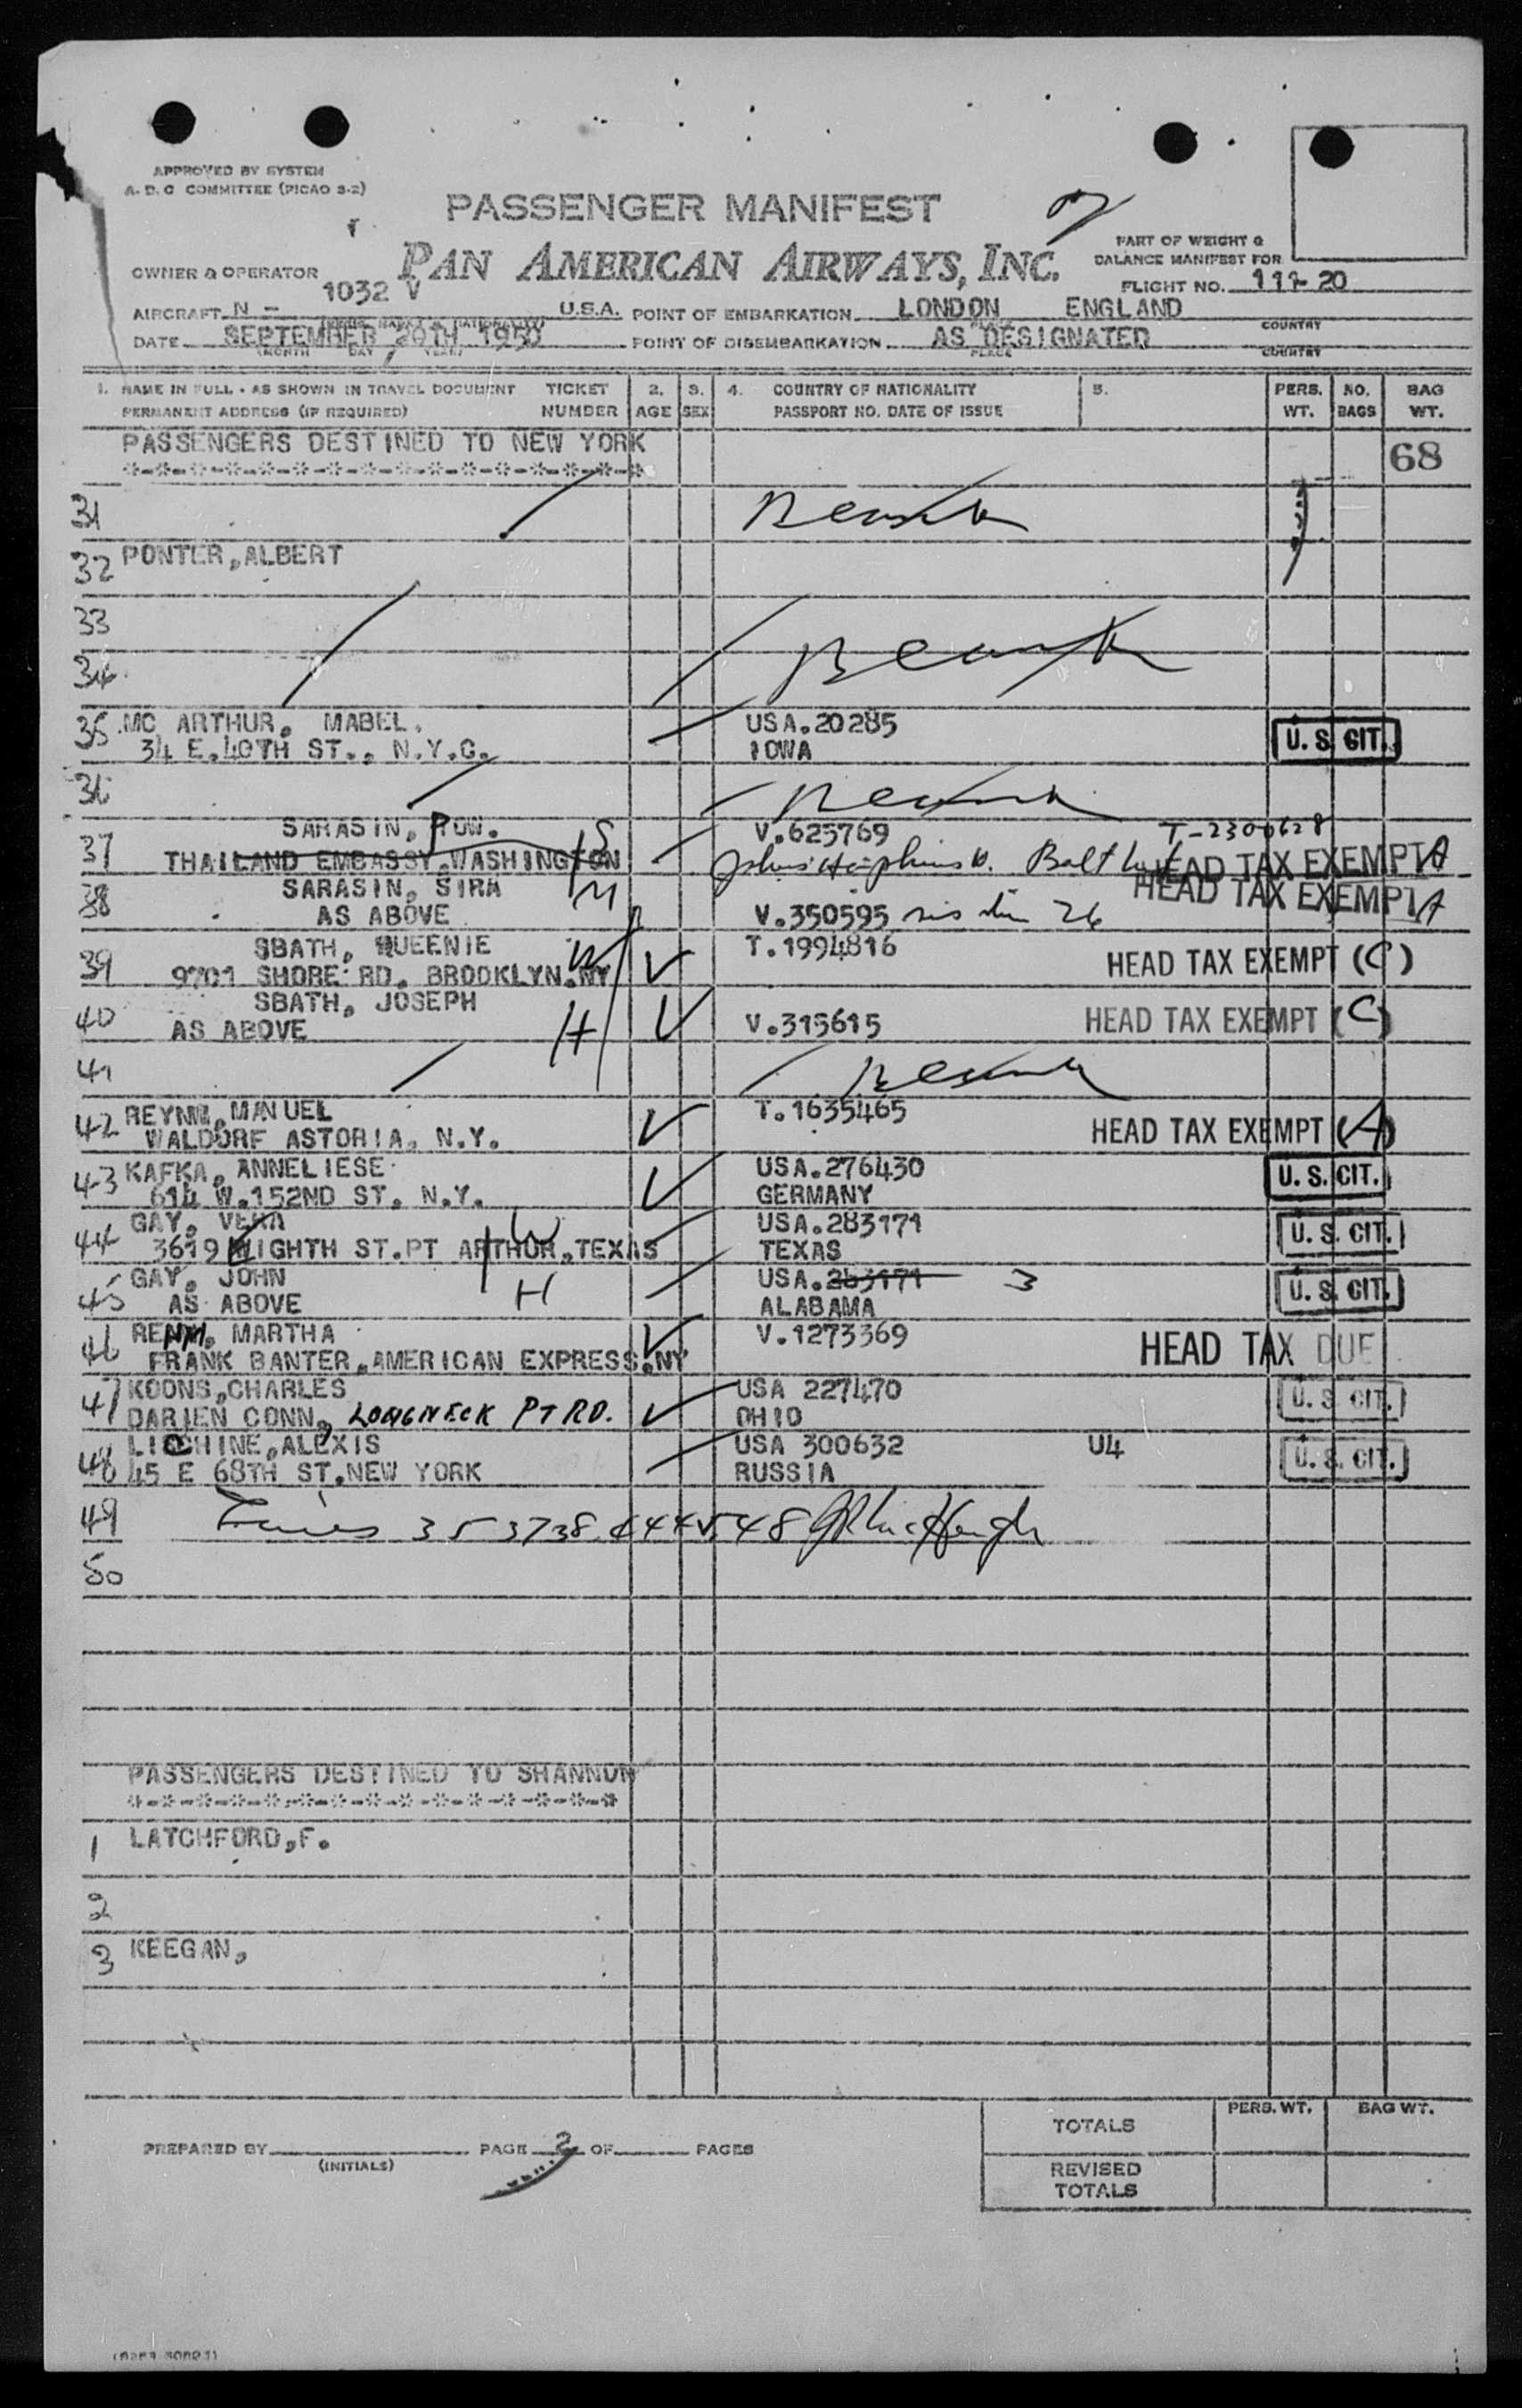 APPROVED BY SYSTEM
A. D. C COMMITTEE (PICAO S-2)
PASSENGER MANIFEST
PAN AMERICAN AIRWAYS, INC.
PART OF WEIGHT &
BALANCE MANIFEST FOR
OWNER & OPERATOR
FLIGHT NO. 111-20
1032 V
AIRCRAFT N - U.S.A. POINT OF EMBARKATION LONDON ENGLAND
DATE SEPTEMBER 20TH 1950 POINT OF DISEMBARKATION AS DESIGNATED
(MONTH DAY YEAR) PLACE COUNTRY
1. NAME IN FULL - AS SHOWN IN TRAVEL DOCUMENT TICKET 2. 3. 4. COUNTRY OF NATIONALITY 5. PERS. NO. BAG
PERMANENT ADDRESS (IF REQUIRED) NUMBER AGE SEX PASSPORT NO. DATE OF ISSUE WT. BAGS WT.
PASSENGERS DESTINED TO NEW YORK
*-*-*-*-*-*-*-*-*-*-*-*-*-*-*-* 68
31
32 PONTER,ALBERT
33
34
35 MC ARTHUR, MABEL. USA.20285
34 E.40TH ST., N.Y.C. IOWA U. S. CIT.
36
37 SARASIN, POW. S V.623769 T-2300628
THAILAND EMBASSY,WASHINGTON Johns Hopkins U. Balt HEAD TAX EXEMPT A
38 SARASIN, SIRA M HEAD TAX EXEMPT A
AS ABOVE V.350595 26
39 SBATH, QUEENIE W T.1994816
9701 SHORE RD. BROOKLYN.NY HEAD TAX EXEMPT (C)
40 SBATH, JOSEPH
AS ABOVE H V.315615 HEAD TAX EXEMPT (C)
41
42 MANUEL T.1635465
WALDORF ASTORIA, N.Y. HEAD TAX EXEMPT (A)
43 KAFKA, ANNELIESE USA.276430
614 W.152ND ST, N.Y. GERMANY U. S. CIT.
44 GAY, VERA W USA.283171
3619 EIGHTH ST.PT ARTHUR,TEXAS TEXAS U. S. CIT.
45 GAY, JOHN H USA.283171 3
AS ABOVE ALABAMA U. S. CIT.
46 MARTHA V.1273369
FRANK BANTER,AMERICAN EXPRESS.NY HEAD TAX DUE
47 KOONS,CHARLES USA 227470
DARIEN CONN, LONGNECK PT RD. OHIO U. S. CIT.
48 LICHINE,ALEXIS USA 300632 U4
45 E 68TH ST.NEW YORK RUSSIA U. S. CIT.
49
50
PASSENGERS DESTINED TO SHANNON
*-*-*-*-*-*-*-*-*-*-*-*-*-*-*
1 LATCHFORD,F.
2
3 KEEGAN,
PERS. WT. BAG WT.
TOTALS
PREPARED BY PAGE 2 OF PAGES
(INITIALS)
REVISED
TOTALS